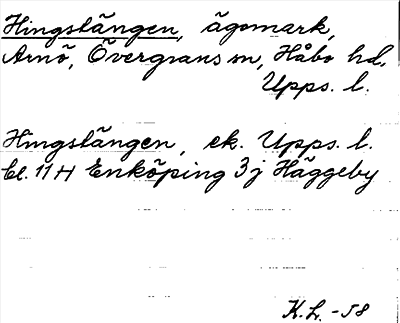 Hingstängen, ägomark,
Arnö, Övergrans sn, Håbo hd,
Upps. l.
Hingstängen, ek. Upps. l.
bl. 11 H Enköping 3 j Häggeby
K.L. -58